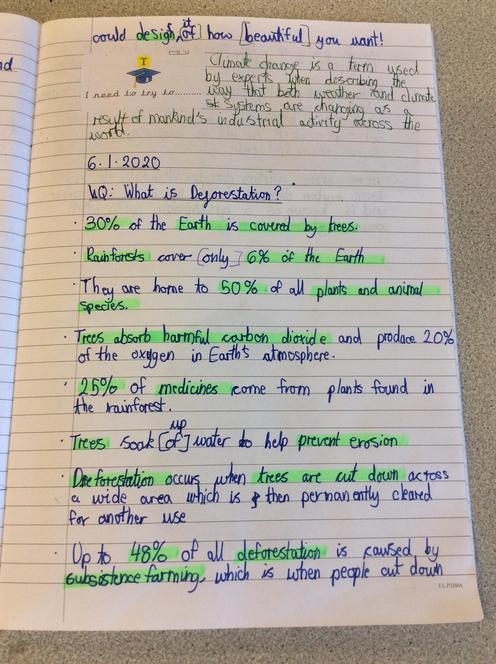 could design, it [of] how [beautiful] you want!
nd
T
I need to try to.........
Climate change is a term used
by experts when describing the
way that both weather and climate
systems are changing as a
result of mankind's industrial activity across the
world.
6.1.2020
WQ: What is Deforestation?
· 30% of the Earth is covered by trees.
· Rainforests cover [only] 6% of the Earth
· They are home to 50% of all plants and animal
species.
· Trees absorb harmful carbon dioxide and produce 20%
of the oxygen in Earth's atmosphere.
· 25% of medicines come from plants found in
the rainforest.
up
· Trees soak [of] water to help prevent erosion
· Deforestation occurs when trees are cut down across
a wide area which is then permanently cleared
for another use
· Up to 48% of all deforestation is caused by
subsistence farming, which is when people cut down